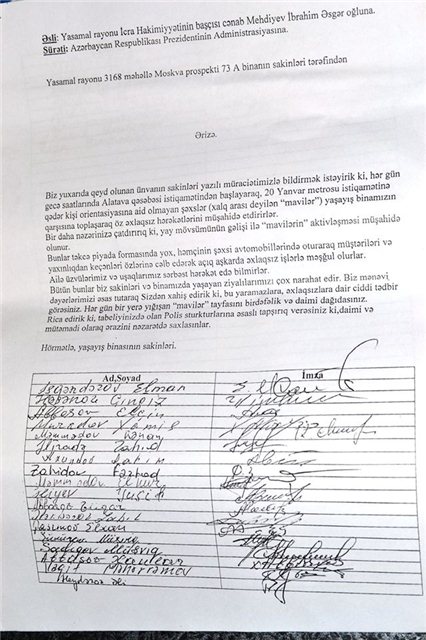 Əsli: Yasamal rayonu İcra Hakimiyyətinin başçısı cənab Mehdiyev İbrahim Əsgər oğluna.
Sürəti: Azərbaycan Respublikası Prezidentinin Administrasiyasına.
Yasamal rayonu 3168 məhəllə Moskva prospekti 73 A binanın sakinləri tərəfindən
Ərizə.
Biz yuxarıda qeyd olunan ünvanın sakinləri yazılı müraciətimizlə bildirmək istəyirik ki, hər gün
gecə saatlarında Alatava qəsəbəsi istiqamətindən başlayaraq, 20 Yanvar metrosu istiqamətinə
qədər kişi orientasiyasına aid olmayan şəxslər (xalq arası deyilən “mavilər”) yaşayış binamızın
qarşısına toplaşaraq öz əxlaqsız hərəkətlərini müşahidə etdirirlər.
Bir daha nəzərinizə çatdırırıq ki, yay mövsümünün gəlişi ilə “mavilərin” aktivləşməsi müşahidə
olunur.
Bunlar təkcə piyada formasında yox, həmçinin şəxsi avtomobillərində oturaraq müştəriləri və
yaxınlıqdan keçənləri özlərinə cəlb edərək açıq aşkarda əxlaqsız işlərlə məşğul olurlar.
Ailə üzvlərimiz və uşaqlarımız sərbəst hərəkət edə bilmirlər.
Bütün bunlar biz sakinləri və binamızda yaşayan ziyalılarımızı çox narahat edir. Biz mənəvi
dəyərlərimizi əsas tutaraq Sizdən xahiş edirik ki, bu yaramazlara, əxlaqsızlara dair ciddi tədbir
görəsiniz. Hər gün bir yerə yığışan “mavilər” tayfasını birdəfəlik və daimi dağıdasınız.
Rica edirik ki, tabeliyinizdə olan Polis sturkturlarına əsaslı tapşırıq verəsiniz ki,daimi və
mütəmadi olaraq ərazini nəzarətdə saxlasınlar.
Hörmətlə, yaşayış binasının sakinləri.
Ad,Soyad İmza
İsgəndərov Elman
Həsənov Çingiz
Ələsgərov Elçin
Muradov Xamis
Məmmədov
Zahid
Zahidov Fərhad
Məmmədov Elnur
Əliyev
Qasımov Elxan
Sadıqov Müşviq
Heydərov Əli